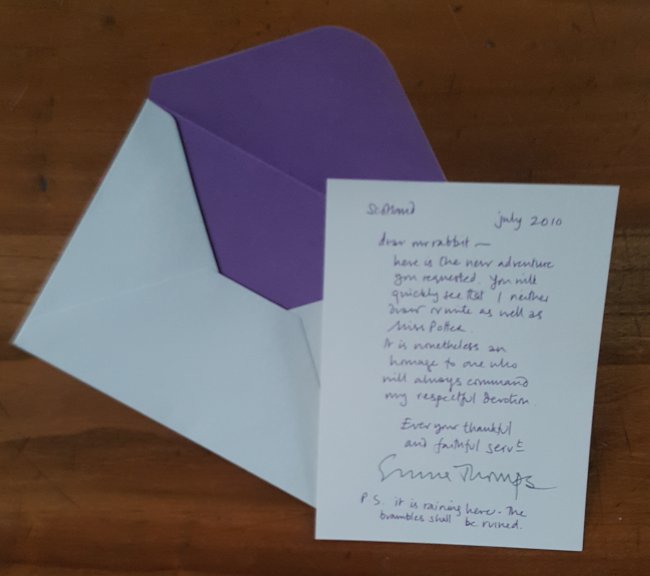 Scotland
july 2010
dear mr rabbit —
here is the new adventure
you requested. You will
quickly see that I neither
draw or write as well as
Miss Potter.
It is nonetheless an
homage to one who
will always command
my respectful devotion.
Ever your thankful
and faithful servt
Emma Thompson
P.S. it is raining here - The
brambles shall be ruined.